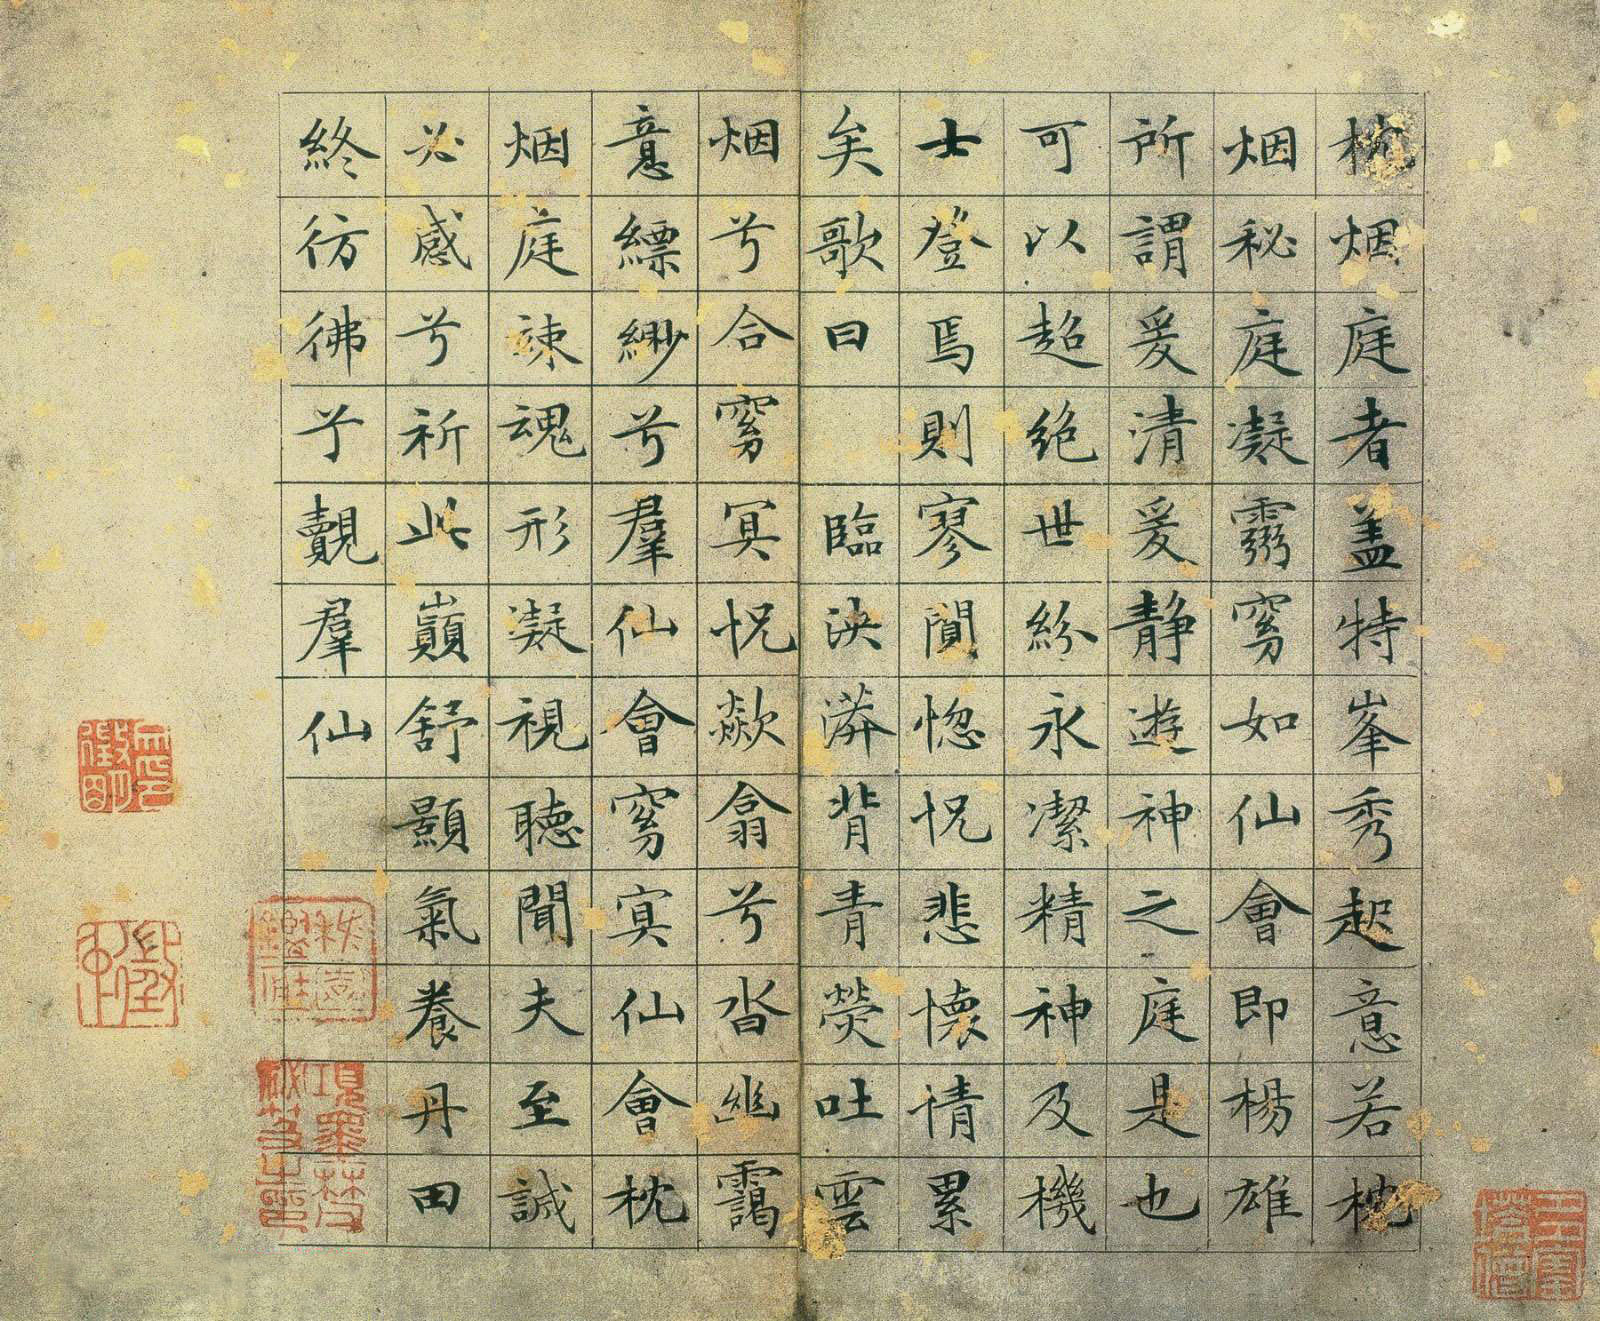 枕烟庭者盖特峯秀起意若枕
烟秘庭凝霿窈如仙會即楊雄
所謂爰清爰静遊神之庭是也
可以超絶世紛永潔精神及機
士登焉則寥閴惚怳悲懷情累
矣歌曰 臨泱漭背青熒吐雲
烟兮合窈冥怳歘翕兮沓幽靄
意縹緲兮羣仙會窈冥仙會枕
烟庭竦魂形凝視聽聞夫至誠
必感兮祈此巔舒顥氣養丹田
終彷彿兮覿羣仙